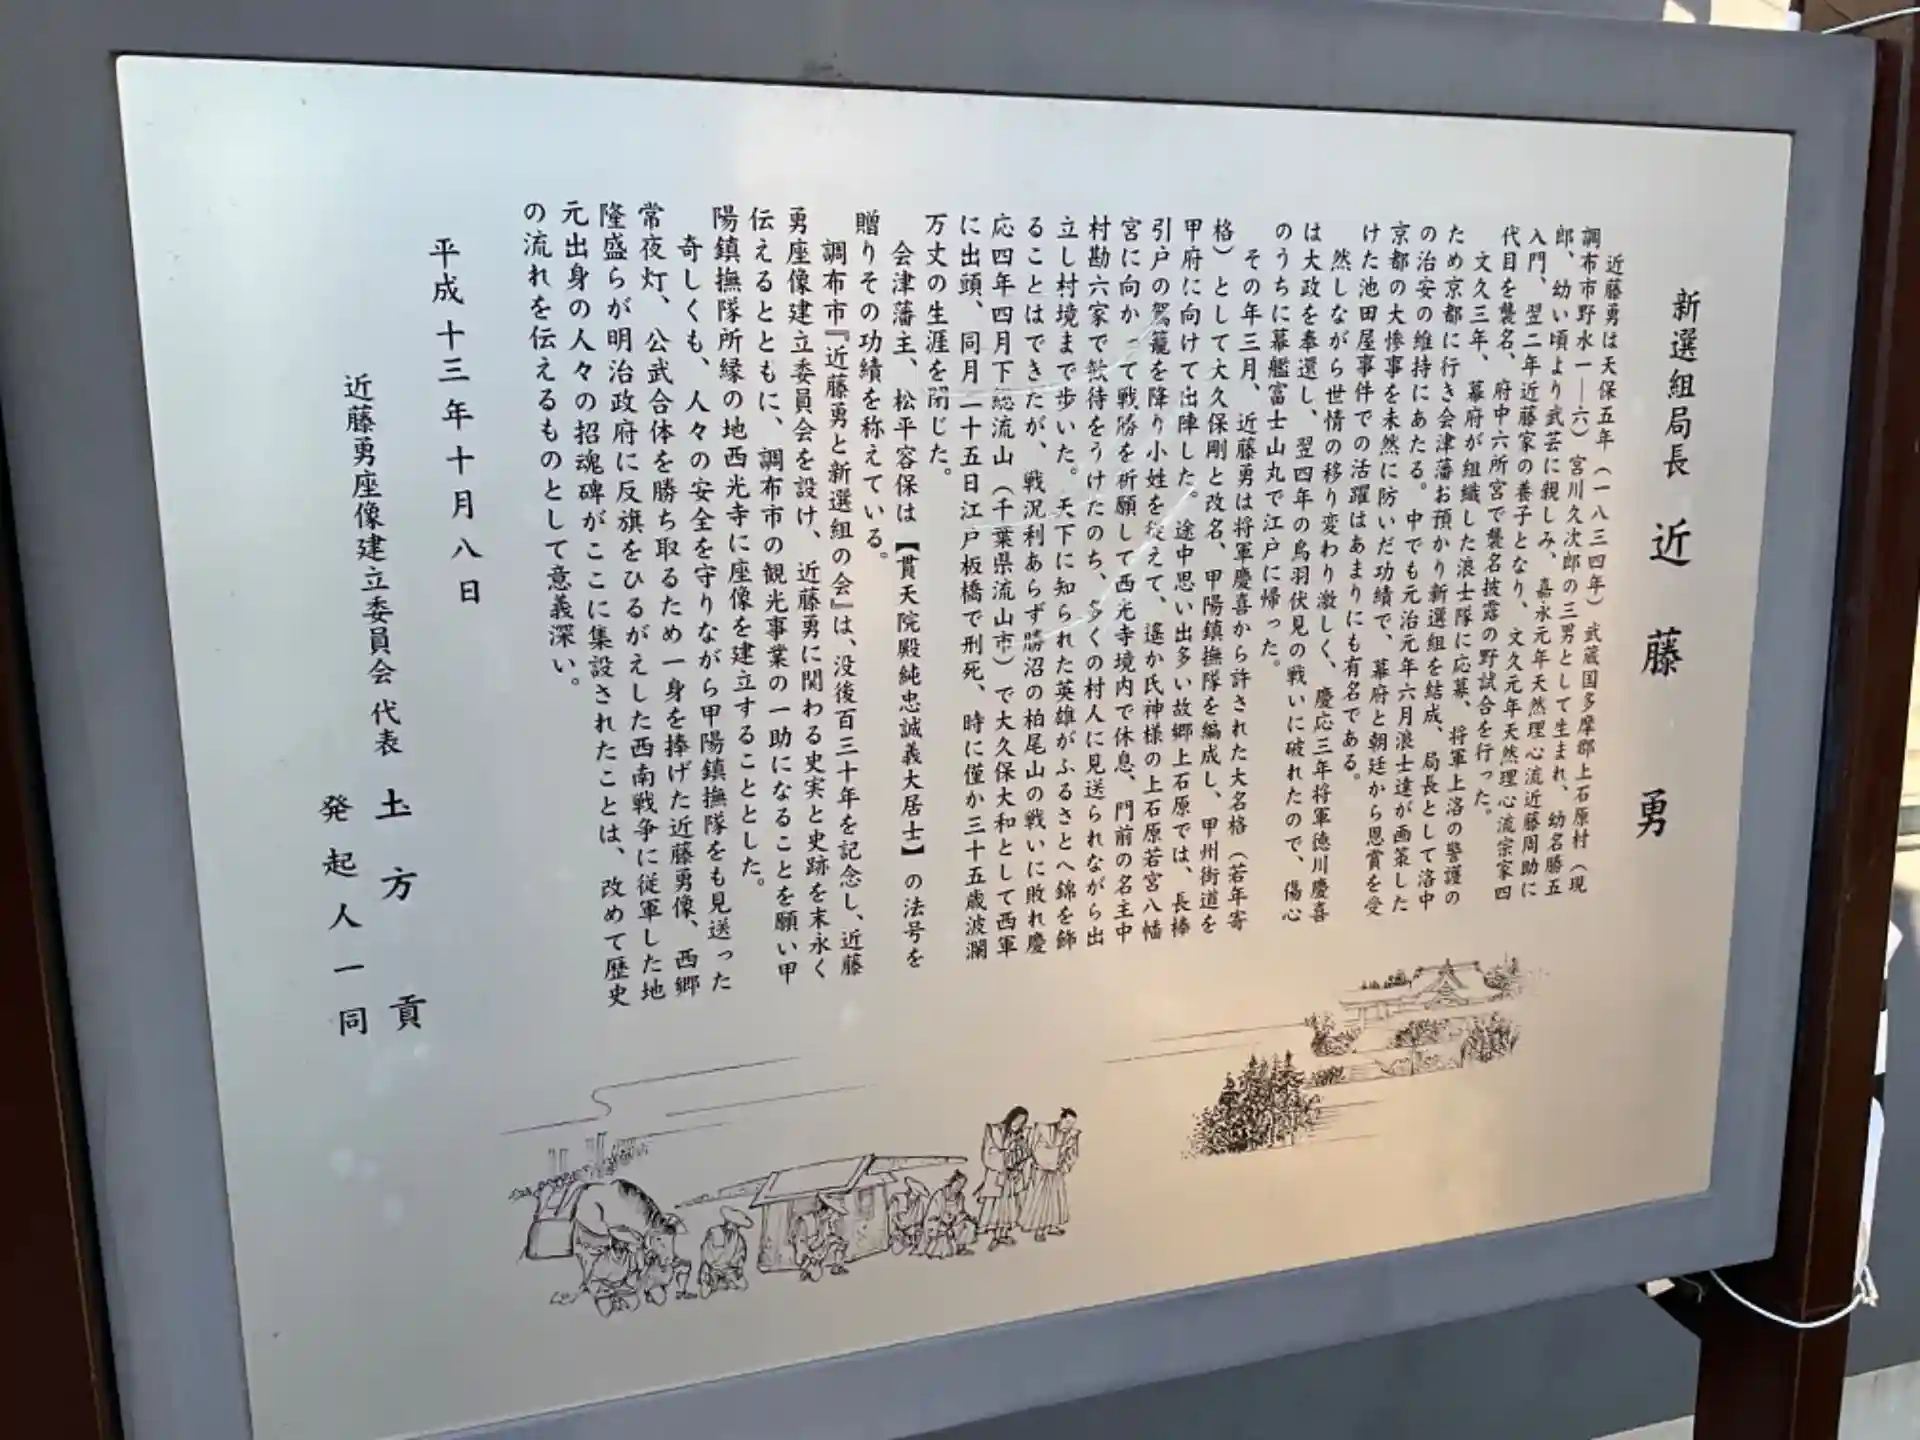 新選組局長 近藤 勇
近藤勇は天保五年（一八三四年）武蔵国多摩郡上石原村（現
調布市野水一―六）宮川久次郎の三男として生まれ、幼名勝五
郎、幼い頃より武芸に親しみ、嘉永元年天然理心流近藤周助に
入門、翌二年近藤家の養子となり、文久元年天然理心流宗家四
代目を襲名、府中六所宮で襲名披露の野試合を行った。
文久三年、幕府が組織した浪士隊に応募、将軍上洛の警護の
ため京都に行き会津藩お預かり新選組を結成、局長として洛中
の治安の維持にあたる。中でも元治元年六月浪士達が画策した
京都の大惨事を未然に防いだ功績で、幕府と朝廷から恩賞を受
けた池田屋事件での活躍はあまりにも有名である。
然しながら世情の移り変わり激しく、慶応三年将軍徳川慶喜
は大政を奉還し、翌四年の鳥羽伏見の戦いに破れたので、傷心
のうちに幕艦富士山丸で江戸に帰った。
その年三月、近藤勇は将軍慶喜から許された大名格（若年寄
格）として大久保剛と改名、甲陽鎮撫隊を編成し、甲州街道を
甲府に向けて出陣した。途中思い出多い故郷上石原では、長棒
引戸の駕籠を降り小姓を従えて、遙か氏神様の上石原若宮八幡
宮に向かって戦勝を祈願して西光寺境内で休息、門前の名主中
村勘六家で歓待をうけたのち、多くの村人に見送られながら出
立し村境まで歩いた。天下に知られた英雄がふるさとへ錦を飾
ることはできたが、戦況利あらず勝沼の柏尾山の戦いに敗れ慶
応四年四月下総流山（千葉県流山市）で大久保大和として西軍
に出頭、同月二十五日江戸板橋で刑死、時に僅か三十五歳波瀾
万丈の生涯を閉じた。
会津藩主、松平容保は【貫天院殿純忠誠義大居士】の法号を
贈りその功績を称えている。
調布市『近藤勇と新選組の会』は、没後百三十年を記念し、近藤
勇座像建立委員会を設け、近藤勇に関わる史実と史跡を末永く
伝えるとともに、調布市の観光事業の一助になることを願い甲
陽鎮撫隊所縁の地西光寺に座像を建立することとした。
奇しくも、人々の安全を守りながら甲陽鎮撫隊をも見送った
常夜灯、公武合体を勝ち取るため一身を捧げた近藤勇像、西郷
隆盛らが明治政府に反旗をひるがえした西南戦争に従軍した地
元出身の人々の招魂碑がここに集設されたことは、改めて歴史
の流れを伝えるものとして意義深い。
平成十三年十月八日
近藤勇座像建立委員会 代表 土方 貢
発起人一同